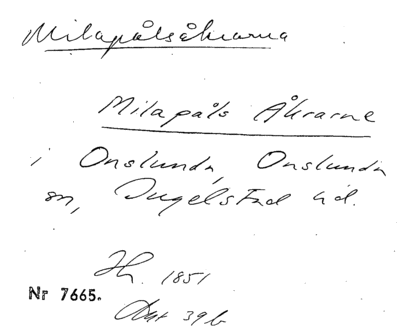 Milapålsåkrarna
Milapåls Åkrarne
i Onslunda, Onslunda
sn, Ingelstad hd.
Jh. 1851
Nr 7665.
Akt 39b